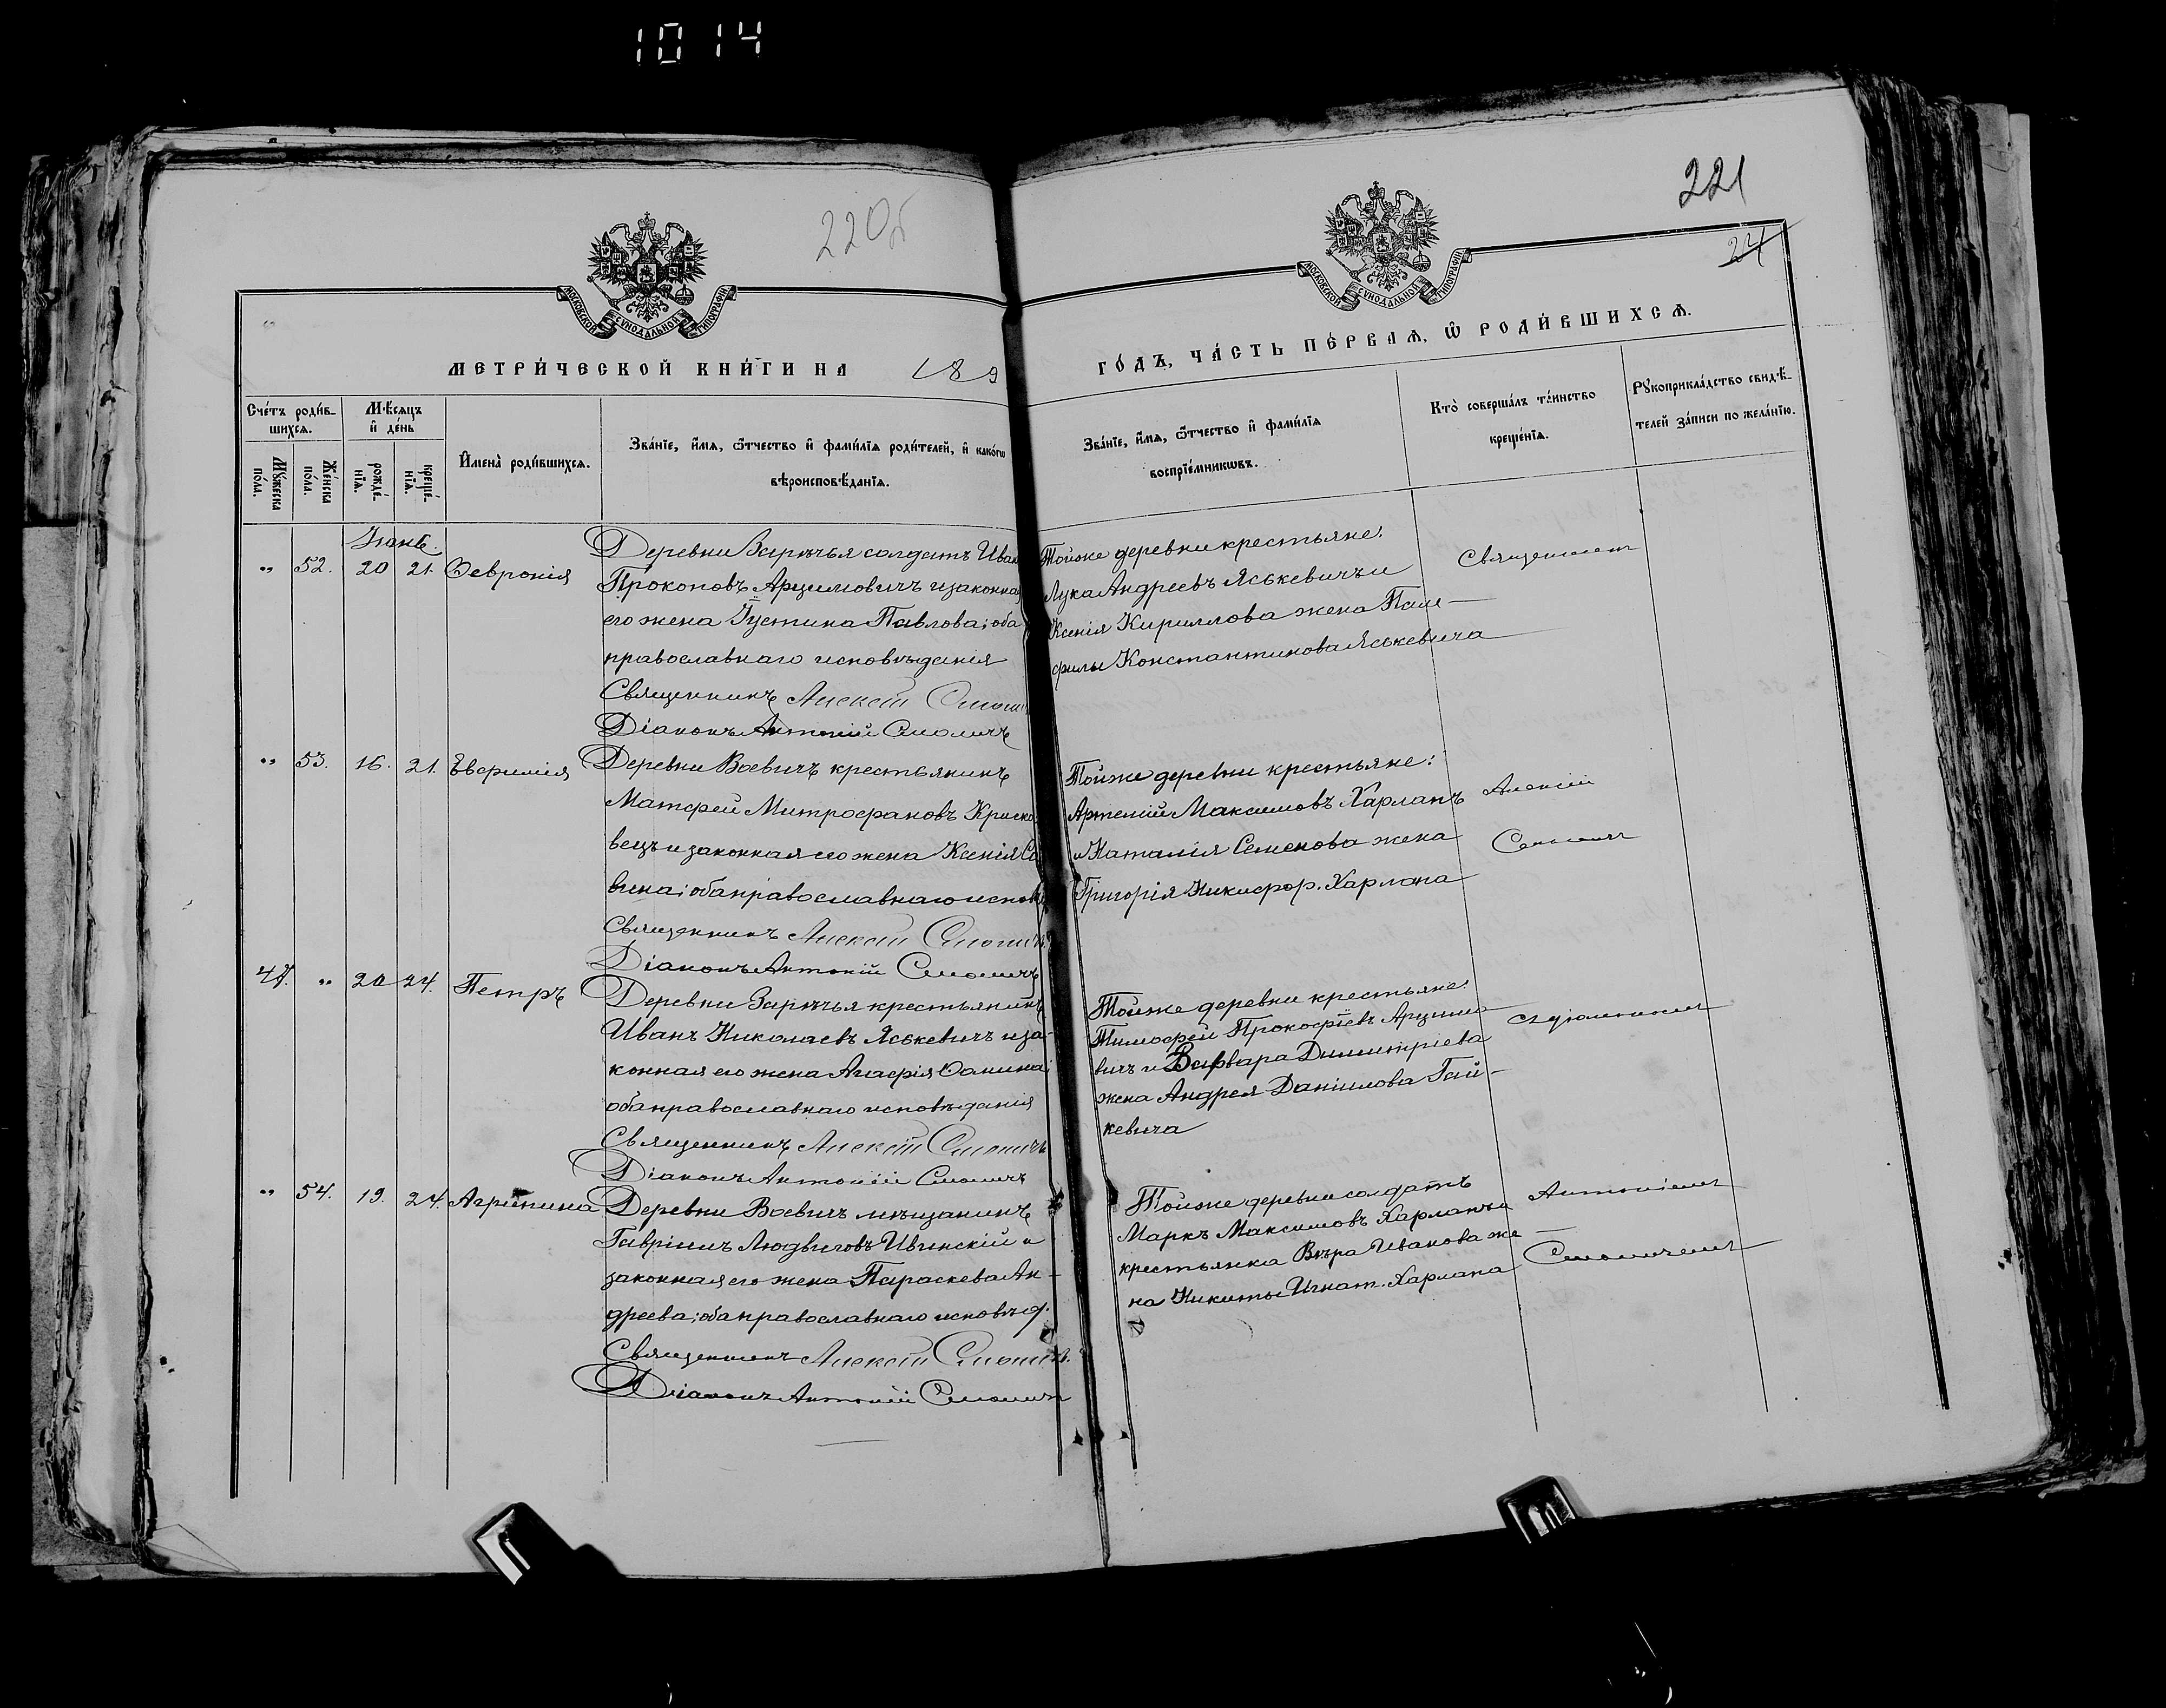 1014
220б
221
24
МОСКОВСКОЙ СУНОДАЛЬНОЙ ТИПОГРАФІИ
МОСКОВСКОЙ СУНОДАЛЬНОЙ ТИПОГРАФІИ
МЕТРИ́ЧЕСКОЙ КНИ́ГИ НА 189
ГО́ДЪ, ЧА́СТЬ ПЕ́РВАѦ, Ѿ РОДИ́ВШИХСѦ.
Сче́тъ роди́в-
шихсѧ.
Мѣ́сѧцъ
и҆ де́нь
Мꙋ́жеска
по́ла.
Же́нска
по́ла.
рожде́-
нїѧ.
креще́-
нїѧ.
И҆мена̀ роди́вшихсѧ.
Зва́нїе, и҆́мѧ, ѻ҆́тчество и҆ фами́лїѧ роди́телей, и҆ како́гѡ
вѣроисповѣ́данїѧ.
Зва́нїе, и҆́мѧ, ѻ҆́тчество и҆ фами́лїѧ
воспрїе́мникѡвъ.
Кто̀ соверша́лъ та́инство
креще́нїѧ.
Рꙋкоприкла́дство свидѣ́-
телей за́писи по жела́нїю.
Іюнь.
„ 52. 20 21. Февронія
Деревни Зарѣчья солдатъ Иван
Прокоповъ Арцимовичъ и законная
его жена Іустина Павлова; оба
православнаго исповѣданія
Священникъ Алексій Смолич
Діаконъ Антоній Смоличъ
Тойже деревни крестьяне:
Лука Андреевъ Яськевичъ и
Ксенія Кириллова жена Пам-
филы Константинова Яськевича
Священникъ
„ 53. 16. 21. Евфимія
Деревни Воевичъ крестьянинъ
Матфей Митрофановъ Криско
вецъ и законная его жена Ксенія Са
вина; оба православнаго испов
Священникъ Алексій Смоличъ
Діаконъ Антоній Смоличъ
Тойже деревни крестьяне:
Артемій Максимовъ Харланъ
и Наталія Семенова жена
Григорія Никифор. Харлана
Алексій
Смоличъ
47. „ 20 24. Петръ
Деревни Зарѣчья крестьянинъ
Иванъ Николаевъ Яськевичъ и за-
конная его жена Агафія Фомина;
оба православнаго исповѣданія
Священникъ Алексій Смоличъ
Діаконъ Антоній Смоличъ
Тойже деревни крестьяне:
Тимофей Прокофіевъ Арцимо-
вичъ и Варвара Димитріева
жена Андрея Даніилова Гай-
кевича
съ діакономъ
„ 54. 19. 24. Агрипина
Деревни Воевичъ мѣщанинъ
Гавріилъ Людвиговъ Ивинскій и
законная его жена Параскева Ан-
дреева; оба православнаго исповѣд.
Священникъ Алексій Смоличъ
Діаконъ Антоній Смоличъ
Тойже деревни солдатъ
Маркъ Максимовъ Харланъ и
крестьянка Вѣра Иванова же-
на Никиты Игнат. Харлана
Антоніемъ
Смоличемъ